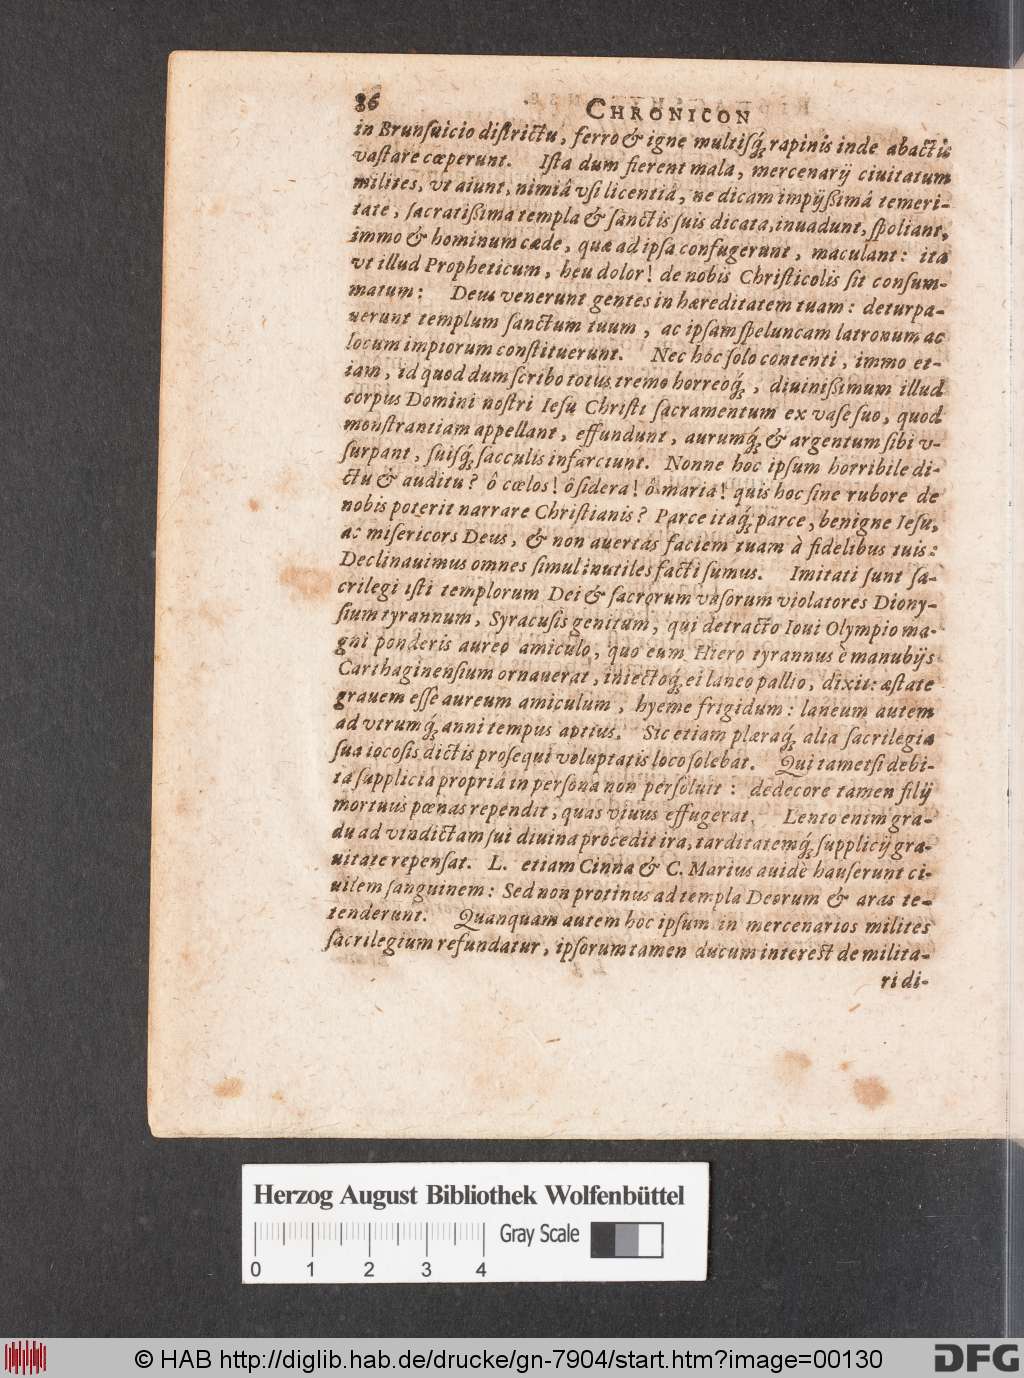 86 CHRONICON
in Brunsuicio districtu, ferro & igne multisq́; rapinis inde abactis
vastare cœperunt. Ista dum fierent mala, mercenarij ciuitatum
milites, vt aiunt, nimiâ vsi licentiâ, ne dicam impijßimâ temeri-
tate, sacratißima templa & sanctis suis dicata, inuadunt, spoliant,
immo & hominum cæde, quæ ad ipsa confugerunt, maculant: ita
vt illud Propheticum, heu dolor! de nobis Christicolis sit consum-
matum: Deus venerunt gentes in hæreditatem tuam: deturpa-
uerunt templum sanctum tuum, ac ipsam speluncam latronum ac
locum impiorum constituerunt. Nec hoc solo contenti, immo et-
iam, id quod dum scribo totus tremo horreoq́;, diuinißimum illud
corpus Domini nostri Iesu Christi sacramentum ex vase suo, quod
monstrantiam appellant, effundunt, aurumq́; & argentum sibi v-
surpant, suisq́; sacculis infarciunt. Nonne hoc ipsum horribile di-
ctu & auditu? ô cœlos! ô sidera! ô maria! quis hoc sine rubore de
nobis poterit narrare Christianis? Parce itaq́; parce, benigne Iesu,
ac misericors Deus, & non auertas faciem tuam à fidelibus tuis:
Declinauimus omnes simul inutiles facti sumus. Imitati sunt sa-
crilegi isti templorum Dei & sacrorum vasorum violatores Diony-
sium tyrannum, Syracusis genitum, qui detracto Ioui Olympio ma-
gni ponderis aureo amiculo, quo eum Hiero tyrannus è manubijs
Carthaginensium ornauerat, iniectoq́; ei laneo pallio, dixit: æstate
grauem esse aureum amiculum, hyeme frigidum: laneum autem
ad vtrumq́; anni tempus aptius. Sic etiam plæraq́; alia sacrilegia
sua iocosis dictis prosequi voluptatis loco solebat. Qui tametsi debi-
ta supplicia propriâ in persona non persoluit: dedecore tamen filij
mortuus pœnas rependit, quas viuus effugerat. Lento enim gra-
du ad vindictam sui diuina procedit ira, tarditatemq́; supplicij gra-
uitate repensat. L. etiam Cinna & C. Marius auidè hauserunt ci-
uilem sanguinem: Sed non protinus ad templa Deorum & aras te-
tenderunt. Quanquam autem hoc ipsum in mercenarios milites
sacrilegium refundatur, ipsorum tamen ducum interest de milita-
ri di-
Herzog August Bibliothek Wolfenbüttel
Gray Scale
0 1 2 3 4
© HAB http://diglib.hab.de/drucke/gn-7904/start.htm?image=00130
DFG